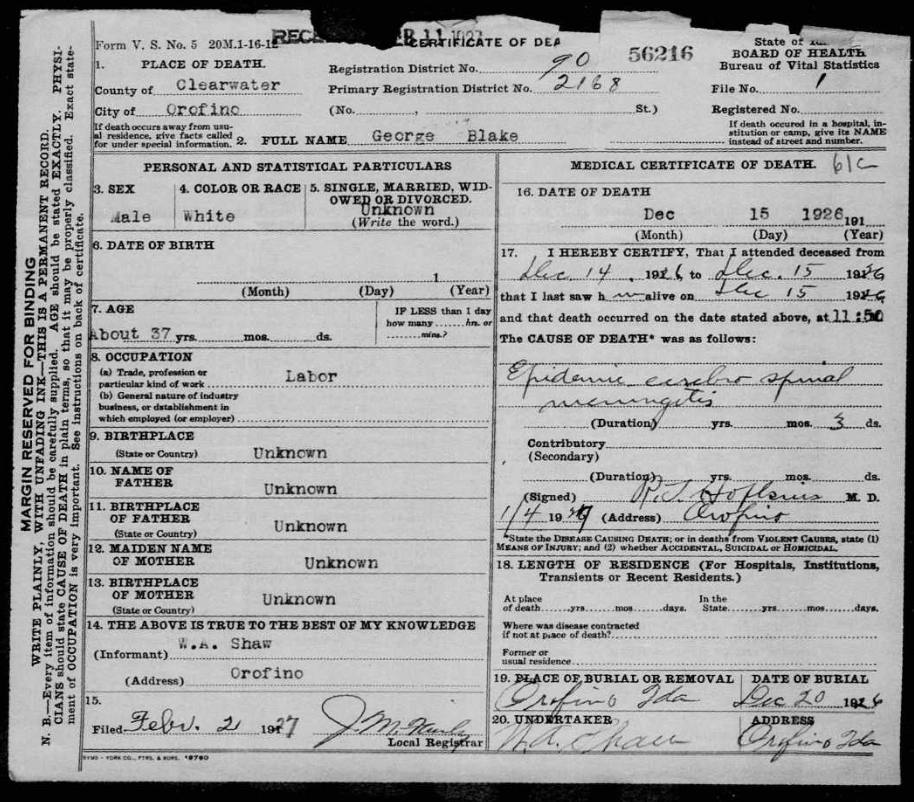 Form V. S. No. 5 20M.1-16-1
CERTIFICATE OF DEA
56216
State of
BOARD OF HEALTH
Bureau of Vital Statistics
1. PLACE OF DEATH.
County of Clearwater
City of Orofino
Registration District No. 90
Primary Registration District No. 2168
(No. , St.)
File No. 1
Registered No.
If death occurs away from usu-
al residence, give facts called
for under special information.
2. FULL NAME George Blake
If death occured in a hospital, in-
stitution or camp, give its NAME
instead of street and number.
PERSONAL AND STATISTICAL PARTICULARS
3. SEX
Male
4. COLOR OR RACE
White
5. SINGLE, MARRIED, WID-
OWED OR DIVORCED.
Unknown
(Write the word.)
6. DATE OF BIRTH
1
(Month) (Day) (Year)
7. AGE
About 37 yrs. mos. ds.
IF LESS than 1 day
how many hrs. or
mins.?
8. OCCUPATION
(a) Trade, profession or
particular kind of work Labor
(b) General nature of industry
business, or dstablishment in
which employed (or employer)
9. BIRTHPLACE
(State or Country) Unknown
10. NAME OF
FATHER Unknown
11. BIRTHPLACE
OF FATHER
(State or Country) Unknown
12. MAIDEN NAME
OF MOTHER Unknown
13. BIRTHPLACE
OF MOTHER
(State or Country) Unknown
14. THE ABOVE IS TRUE TO THE BEST OF MY KNOWLEDGE
(Informant) W.A. Shaw
(Address) Orofino
15.
Filed Febr. 2 1927
Local Registrar
SYMS - YORK CO., PTRS. & BDRS. 19760
MEDICAL CERTIFICATE OF DEATH. 61c
16. DATE OF DEATH
Dec 15 1926 191
(Month) (Day) (Year)
17. I HEREBY CERTIFY, That I attended deceased from
Dec. 14, 1926 to Dec. 15 1926
that I last saw h m alive on Dec 15 1926
and that death occurred on the date stated above, at 11:50
The CAUSE OF DEATH* was as follows:
Epidemic cerebro spinal
meningitis
(Duration) yrs. mos. 3 ds.
Contributory
(Secondary)
(Duration) yrs. mos. ds.
(Signed) M. D.
1/4 1927 (Address) Orofino
*State the DISEASE CAUSING DEATH; or in deaths from VIOLENT CAUSES, state (1)
MEANS OF INJURY; and (2) whether ACCIDENTAL, SUICIDAL or HOMICIDAL.
18. LENGTH OF RESIDENCE (For Hospitals, Institutions,
Transients or Recent Residents.)
At place
of death yrs. mos. days.
In the
State yrs. mos. days.
Where was disease contracted
if not at place of death?
Former or
usual residence
19. PLACE OF BURIAL OR REMOVAL
Orofino Ida
DATE OF BURIAL
Dec 20 1926
20. UNDERTAKER
W.A. Shaw
ADDRESS
Orofino Ida
MARGIN RESERVED FOR BINDING
WRITE PLAINLY, WITH UNFADING INK—THIS IS A PERMANENT RECORD.
N. B.—Every item of information should be carefully supplied. AGE should be stated EXACTLY. PHYSI-
CIANS should state CAUSE OF DEATH in plain terms, so that it may be properly classified. Exact state-
ment of OCCUPATION is very important. See instructions on back of certificate.